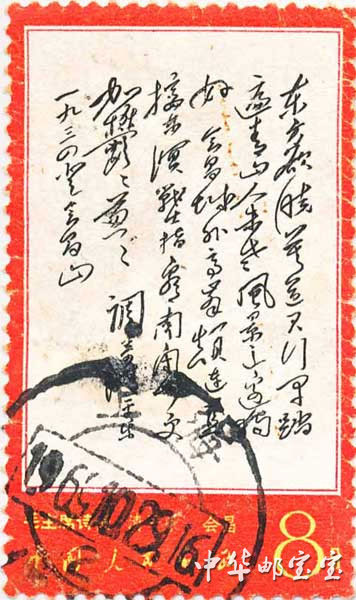 东方欲晓莫道君行早踏
遍青山人未老风景这边独
好会昌城外高峰颠连直
接东溟战士指看南
更
加鬱〻葱〻调寄清平乐
一九三四登会昌山
1969.10.29.16
毛主席诗
会昌
8
中国人民
中华邮宝室